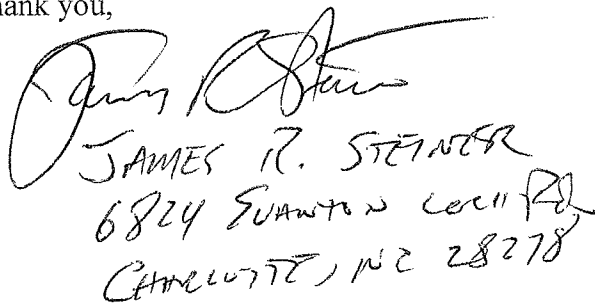 hank you,
James R Steiner
JAMES R. STEINER
6824 EVANTON LOCH RD
CHARLOTTE, NC 28278